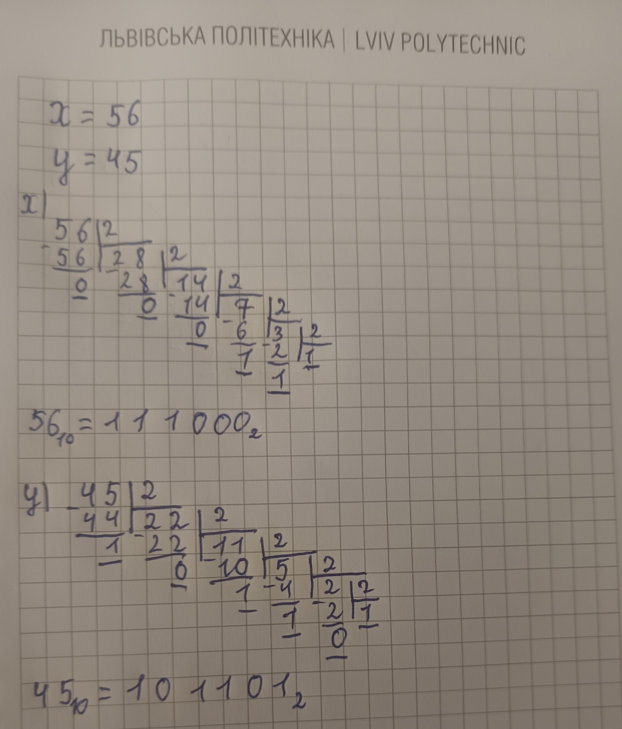 ЛЬВІВСЬКА ПОЛІТЕХНІКА | LVIV POLYTECHNIC
x = 56
y = 45
x)
56 2
- 56 - 28 2
0 28 - 14 2
0 14 - 7 2
0 6 - 3 2
1 2 1
1
56₁₀ = 111000₂
y) - 45 2
44 - 22 2
1 22 - 11 2
0 10 5 2
1 - 4 - 2 2
1 2 1
0
45₁₀ = 101101₂